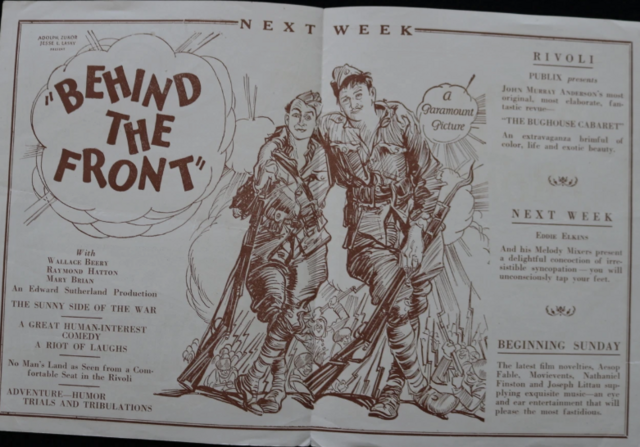 NEXT WEEK
ADOLPH ZUKOR
JESSE L. LASKY
PRESENT
"BEHIND
THE
FRONT"
With
WALLACE BEERY
RAYMOND HATTON
MARY BRIAN
An Edward Sutherland Production
THE SUNNY SIDE OF THE WAR
A GREAT HUMAN-INTEREST
COMEDY
A RIOT OF LAUGHS
No Man's Land as Seen from a Com-
fortable Seat in the Rivoli
ADVENTURE—HUMOR
TRIALS AND TRIBULATIONS
A
Paramount
Picture
RIVOLI
PUBLIX presents
JOHN MURRAY ANDERSON'S most
original, most elaborate, fan-
tastic revue—
"THE BUGHOUSE CABARET"
An extravaganza brimful of
color, life and exotic beauty.
NEXT WEEK
EDDIE ELKINS
And his Melody Mixers present
a delightful concoction of irre-
sistible syncopation—you will
unconsciously tap your feet.
BEGINNING SUNDAY
The latest film novelties, Aesop
Fable, Movievents, Nathaniel
Finston and Joseph Littau sup-
plying exquisite music—an eye
and ear entertainment that will
please the most fastidious.